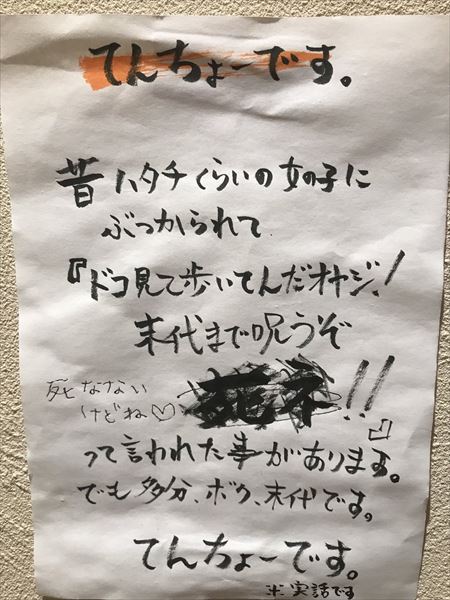 てんちょーです。
昔ハタチくらいの女の子に
ぶつかられて
『ドコ見て歩いてんだオヤジ!
末代まで呪うぞ
死なない
けどね♡
死ネ!!』
って言われた事があります。
でも多分、ボク、末代です。
てんちょーです。
※実話です